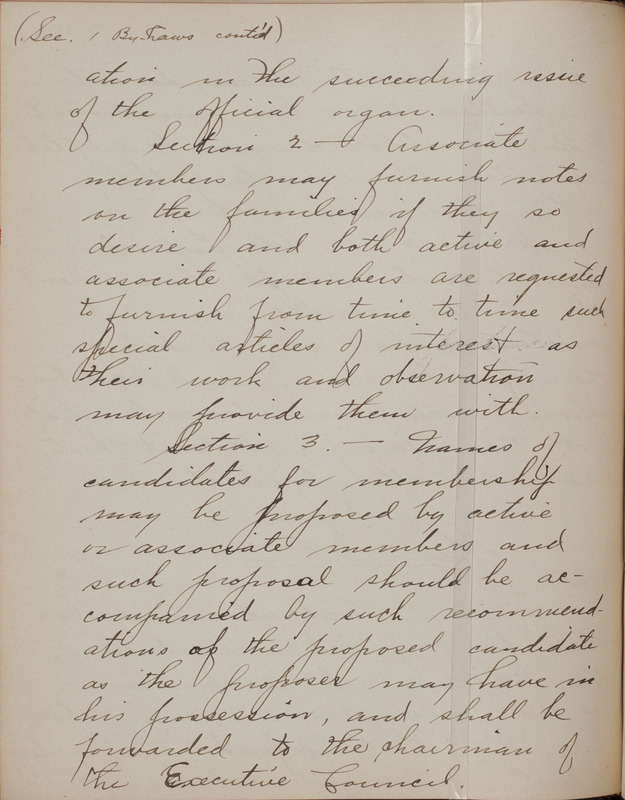 (Sec. 1 By-Laws cont'd)
ation in the succeeding issue
of the official organ.
Section 2 — Associate
members may furnish notes
on the families if they so
desire and both active and
associate members are requested
to furnish from time to time such
special articles of interest as
their work and observation
may provide them with.
Section 3. — Names of
candidates for membership
may be proposed by active
or associate members and
such proposal should be ac-
companied by such recommend-
ations of the proposed candidate
as the proposer may have in
his possession, and shall be
forwarded to the chairman of
the Executive Council.